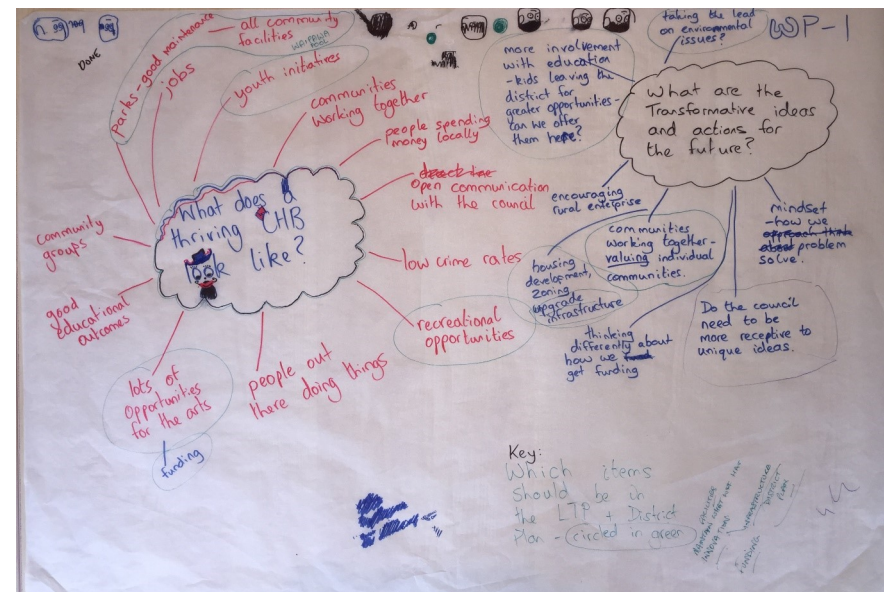 DONE
Parks - good maintenance
all community
facilities
WAIPAWA
POOL
jobs
youth initiatives
communities
working together
people spending
money locally
open communication
with the council
low crime rates
recreational
opportunities
people out
there doing things
lots of
opportunities
for the arts
funding
good
educational
outcomes
community
groups
What does a
thriving CHB
look like?
WP-1
taking the lead
on environmental
issues?
more involvement
with education
- kids leaving the
district for
greater opportunities -
can we offer
them here?
What are the
Transformative ideas
and actions for
the future?
encouraging
rural enterprise
communities
working together -
valuing individual
communities.
housing
development,
zoning
upgrade
infrastructure
thinking
differently about
how we
get funding
mindset
- how we
problem
solve.
Do the council
need to be
more receptive to
unique ideas.
Key:
Which items
should be in
the LTP + District
Plan - circled in green
INFRASTRUCTURE
DISTRICT
PLAN
FUNDING